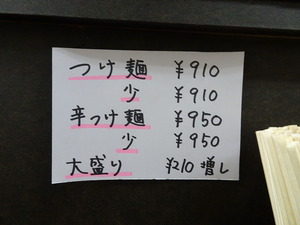 つけ麺 ¥910
少 ¥910
辛つけ麺 ¥950
少 ¥950
大盛り ¥210増し